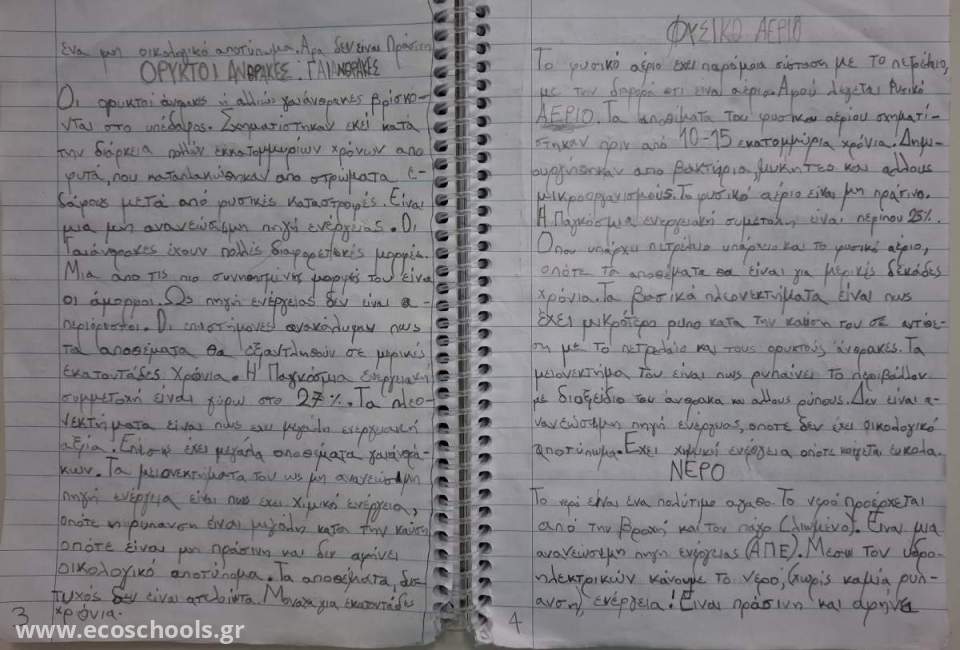 ένα μη οικολογικό αποτύπωμα. Άρα δεν είναι Πράσινη
ΟΡΥΚΤΟΙ ΑΝΘΡΑΚΕΣ: ΓΑΙΑΝΘΡΑΚΕΣ
Οι ορυκτοί άνθρακες ή αλλιώς γαιάνθρακες βρίσκο-
νται στο υπέδαφος. Σχηματίστηκαν εκεί κατά
την διάρκεια πολλών εκατομμυρίων χρόνων απο
φυτά, που καταπλακώθηκαν απο στρώματα ε-
δάφους μετά από φυσικές καταστροφές. Είναι
μια μη ανανεώσιμη πηγή ενέργειας. Οι
Γαιάνθρακες έχουν πολλές διαφορετικές μορφές.
Μια απο τις πιο συνηθισμένης μορφές του είναι
οι άμορφοι. Ως πηγή ενέργειας δεν είναι α-
περιόριστοι. Οι επιστήμονες ανακάλυψαν πως
τα αποθέματα θα εξαντληθούν σε μερικές
εκατοντάδες χρόνια. Η Παγκόσμια ενεργειακή
συμμετοχή είναι γύρω στο 27%. Τα πλεο-
νεκτήματα είναι πως έχει μεγάλη ενεργειακή
αξία. Επίσης έχει μεγάλα αποθέματα γαιανθρά-
κων. Τα μειονεκτήματα του ως μη ανανεώσιμη
πηγή ενέργεια είναι πως έχει χιμικό ενέργεια,
οπότε η ρύπανση είναι μεγάλη κατα την καύση
οπότε είναι μη πράσινη και δεν αφήνει
οικολογικό αποτύπωμα. Τα αποθέματα, δυσ-
τυχος δεν είναι ατελείωτα. Μοναχα για εκατοντάδες
χρόνια.
3
ΦΥΣΙΚΟ ΑΕΡΙΟ
Το φυσικό αέριο έχει παρόμοια σύσταση με το πετρέλαιο,
με την διαφορά οτι είναι αέριο. Αφού λέγεται Φυσικό
ΑΕΡΙΟ. Τα αποθέματα του φυσικου αερίου σχηματί-
στηκαν πριν από 10-15 εκατομμύρια χρόνια. Δημι-
ουργήθηκαν απο βακτήρια, μύκητες και άλλους
μικροοργανισμούς. Το φυσικό αέριο είναι μη πράσινο.
Η Παγκόσμια ενεργειακή συμετοχή είναι περίπου 25%.
Όπου υπάρχει πετρέλαιο υπάρχει και το φυσικό αέριο,
οπότε τα αποθέματα θα είναι για μερικές δεκάδες
χρόνια. Τα βασικά πλεονεκτήματα είναι πως
έχει μικρότερο ρυπο κατα την καύση του σε αντίθε-
ση με το πετρελαίο και τους ορυκτούς άνθρακες. Τα
μειονεκτήμα του είναι πως ρυπαίνει το περιβάλλον
με διοξείδιο του άνθρακα και αλλους ρύπους. Δεν είναι α-
νανεώσιμη πηγή ενέργειας, οποτε δεν έχει οικολογικό
αποτύπωμα. Έχει χιμική ενέργεια οποτε καίγεται εύκολα.
ΝΕΡΟ
Το νερό είναι ένα πολύτιμο αγαθο. Το νερό προέρχεται
από την βροχή και τον πάγο (λιωμένο). Είναι μια
ανανεώσιμη πηγή ενέργειας (ΑΠΕ). Μεσω του υδρο-
ηλεκτρικών κάνουμε το νερό, (χωρίς καμία ρυπ-
ανση, ενέργεια! Είναι πράσινη και αφήνει
4
www.ecoschools.gr